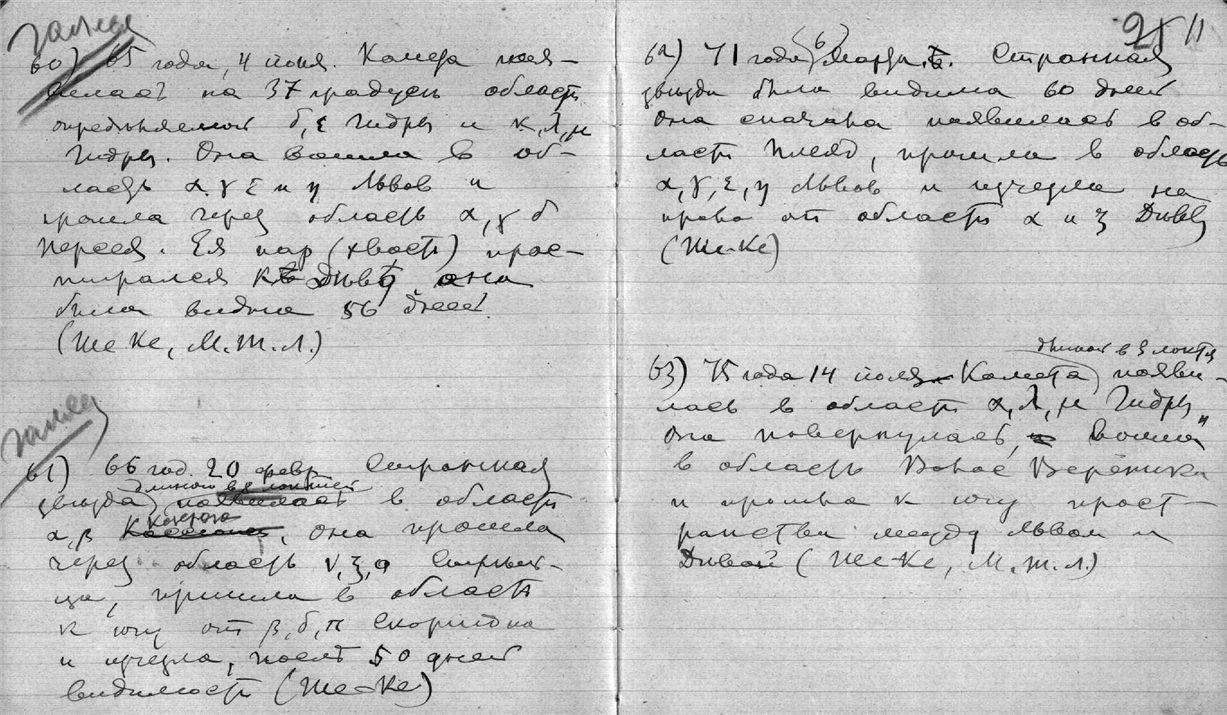 Галлей
60) 65 года, 4 июня. Комета поя-
вилась на 37 градусѣ области
опредѣляемой δ, ε Гидры и κ, λ, μ
Гидры. Она вошла в об-
ласть α, γ, ε и η Львов и
прошла через область α, γ δ
Персея. Ея пар (хвост) прос-
тирался къ Дивѣ она
была видна 56 дней.
(Ше Ке, М. Т. Л.)
Галлей
61) 66 год. 20 февр Странная
длиною в 8 локтей
звѣзда появилась в области
Козерога
α, β, она прошла
через область ν, ξ, ο Стрѣль-
ца, пришла в область
к югу от β, δ, π Скорпиона
и изчезла, послѣ 50 дней
видимости (Ше-Ке)
25 11
62) 71 года 6 Марта. Странная
звѣзда была видима 60 дней
Она сначала появилась в об-
ласти Плеяд, прошла в область
α, γ, ε, η Львов и изчезла на
право от области α и ξ Дивы
(Ше-Ке)
длиной в 3 локтя
63) 75 года 14 июля Комета появи-
лась в области α, λ, μ Гидры,
Она повернулась, вошла
в область Волос Вереники
и прошла к югу прост-
ранства между Львом и
Дивой (Ше-Ке, М. Т. Л.)